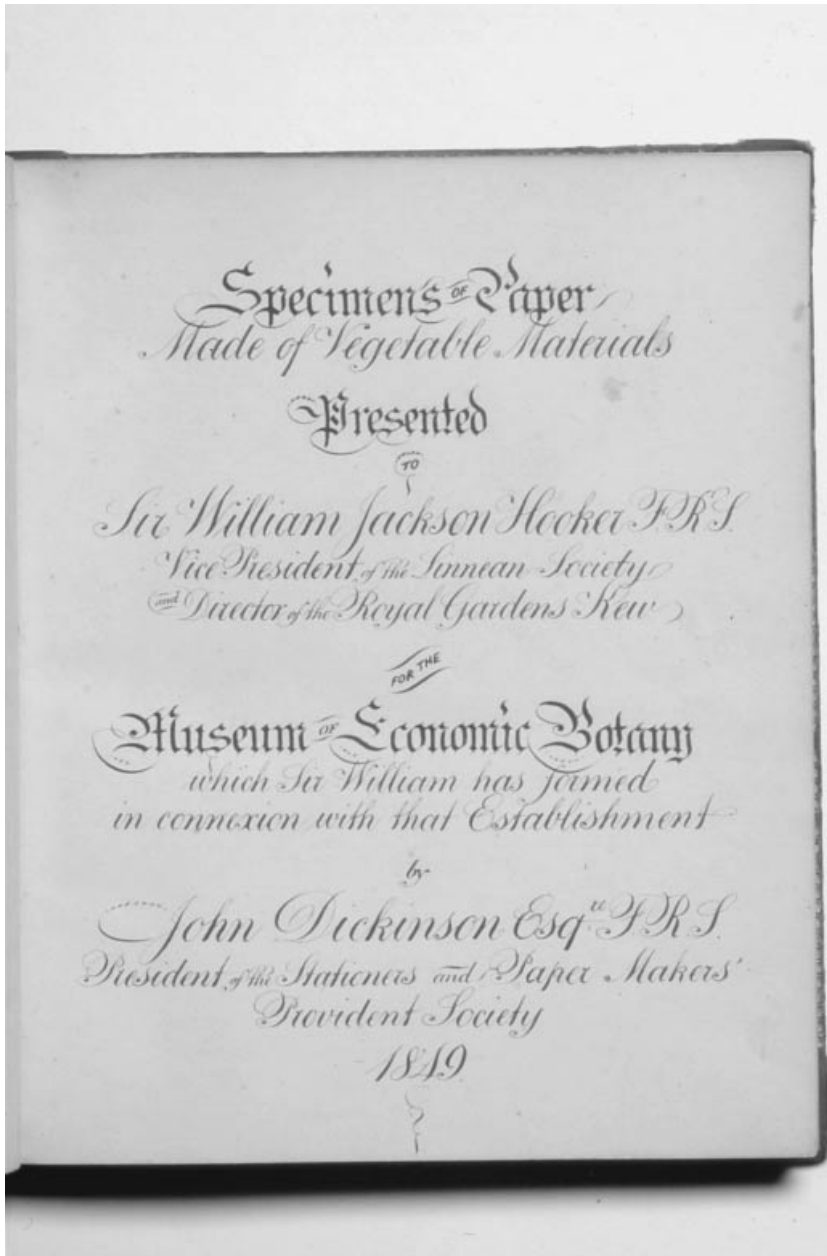 Specimens OF Paper
Made of Vegetable Materials
Presented
TO
Sir William Jackson Hooker F.R.S.
Vice President of the Linnean Society
and Director of the Royal Gardens Kew
FOR THE
Museum OF Economic Botany
which Sir William has formed
in connexion with that Establishment
by
John Dickinson Esqre F.R.S.
President of the Stationers and Paper Makers'
Provident Society
1849